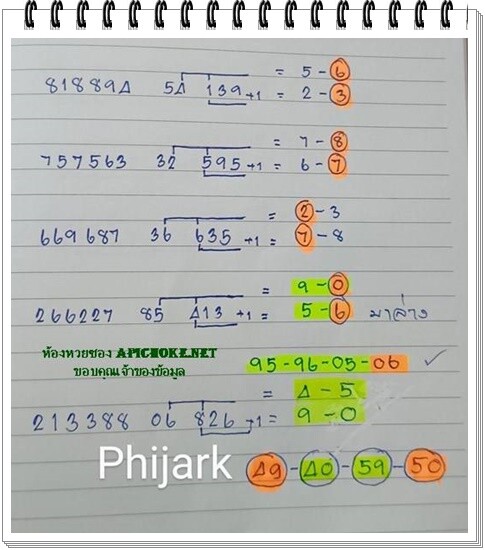 = 5 - 6
81889Δ 5Δ 139 +1 = 2 - 3
= 7 - 8
757563 32 595 +1 = 6 - 7
= 2 - 3
669687 36 635 +1 = 7 - 8
= 9 - 0
266227 85 Δ13 +1 = 5 - 6 มาล่าง
ห้องหวยซอง APICHOKE.NET
ขอบคุณเจ้าของข้อมูล
95-96-05-06 ✓
= Δ - 5
213388 06 826 +1 = 9 - 0
Phijark
Δ9 - Δ0 - 59 - 50